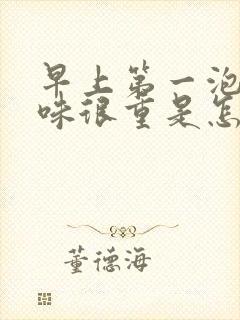 早上第一泡
味很重是怎
董德海